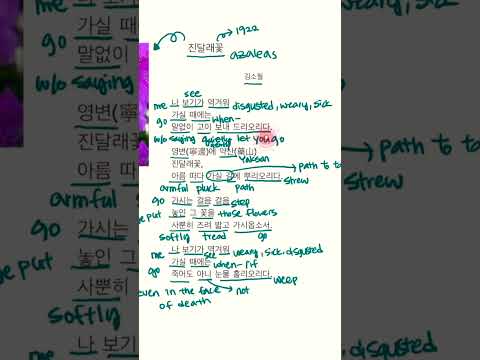 → 1922
진달래꽃
azaleas
김소월
see
me 나 보기가 역겨워 disgusted, weary, sick
go 가실 때에는 when-
말없이 고이 보내 드리오리다.
w/o saying quietly let you go
영변(寧邊)에 약산(藥山)
Yaksan
진달래꽃,
→ path to ta
아름 따다 가실 길에 뿌리오리다. strew
armful pluck path
go 가시는 걸음 걸음 step
put 놓인 그 꽃을 those flowers
사뿐히 즈려 밟고 가시옵소서.
softly tread go
me 나 보기가 역겨워
see weary, sick, disgusted
go 가실 때에는 when- if
죽어도 아니 눈물 흘리오리다. weep
even in the face → not
of death
가실 때
go
말없이
w/o saying
영변(寧
진달래꽃
아름 따
armful
go
가시는
put
놓인 그
사뿐히
softly
나 보기